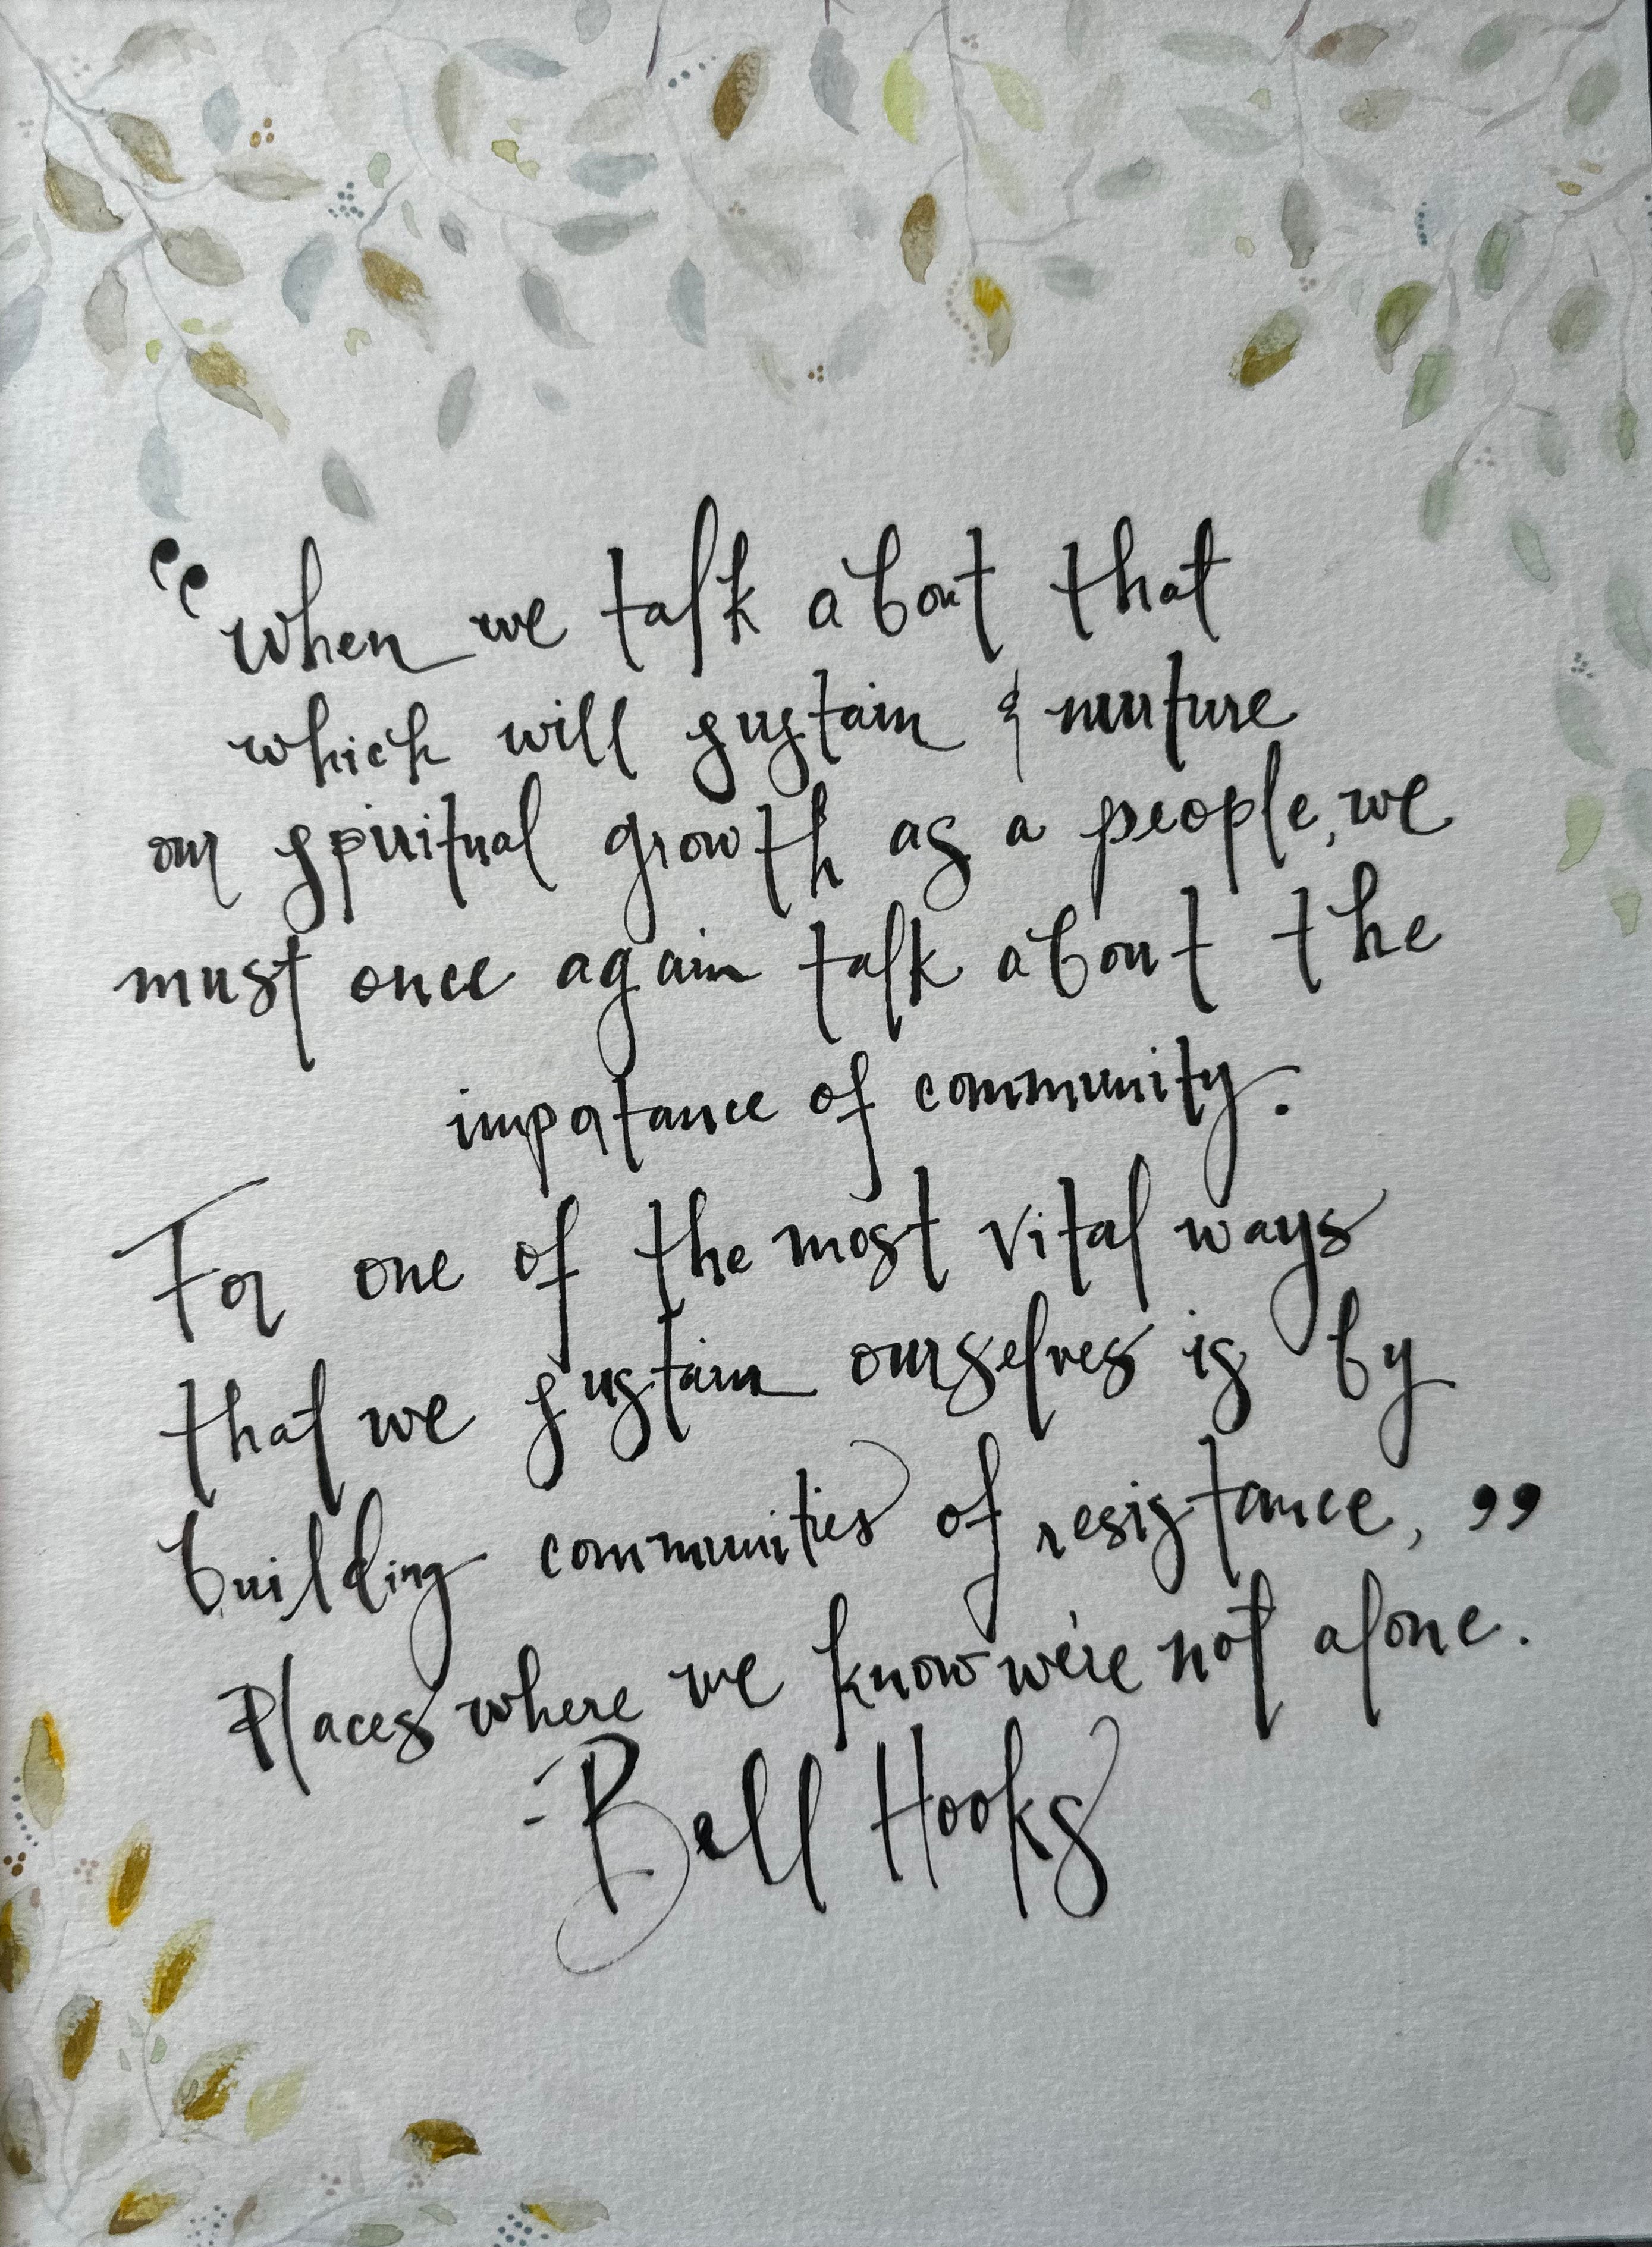 “When we talk about that
which will sustain & nurture
our spiritual growth as a people, we
must once again talk about the
importance of community.
For one of the most vital ways
that we sustain ourselves is by
building communities of resistance, ”
Places where we know we're not alone.
- Bell Hooks